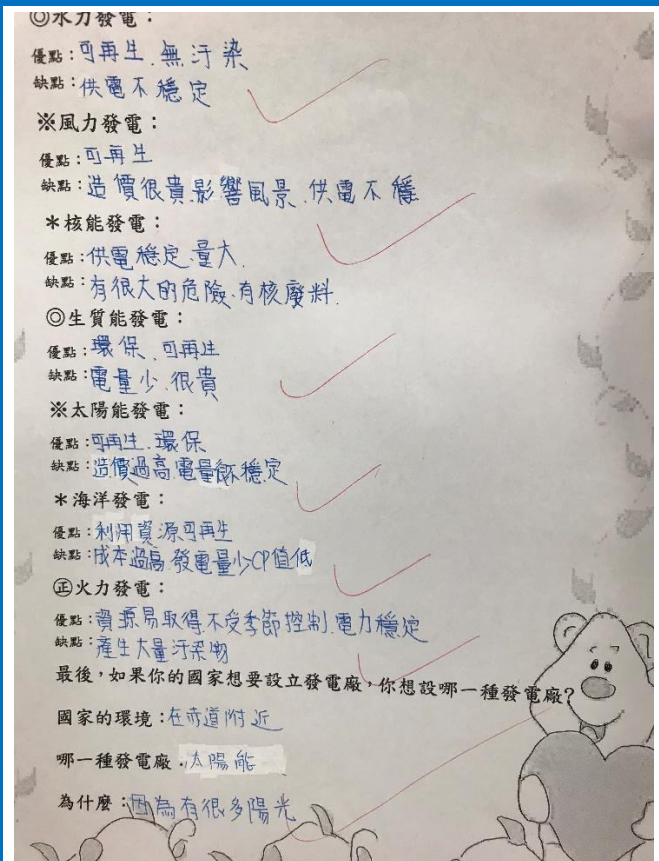 ◎水力發電：
優點：可再生、無汙染
缺點：供電不穩定
※風力發電：
優點：可再生
缺點：造價很貴、影響風景、供電不穩
＊核能發電：
優點：供電穩定、量大、
缺點：有很大的危險、有核廢料、
◎生質能發電：
優點：環保、可再生
缺點：電量少、很貴
※太陽能發電：
優點：可再生、環保
缺點：造價過高、電量不穩定
＊海洋發電：
優點：利用資源可再生
缺點：成本過高、發電量少CP值低
㊣火力發電：
優點：資源易取得、不受季節控制、電力穩定
缺點：產生大量汙染物
最後，如果你的國家想要設立發電廠，你想設哪一種發電廠？
國家的環境：在赤道附近
哪一種發電廠：太陽能
為什麼：因為有很多陽光